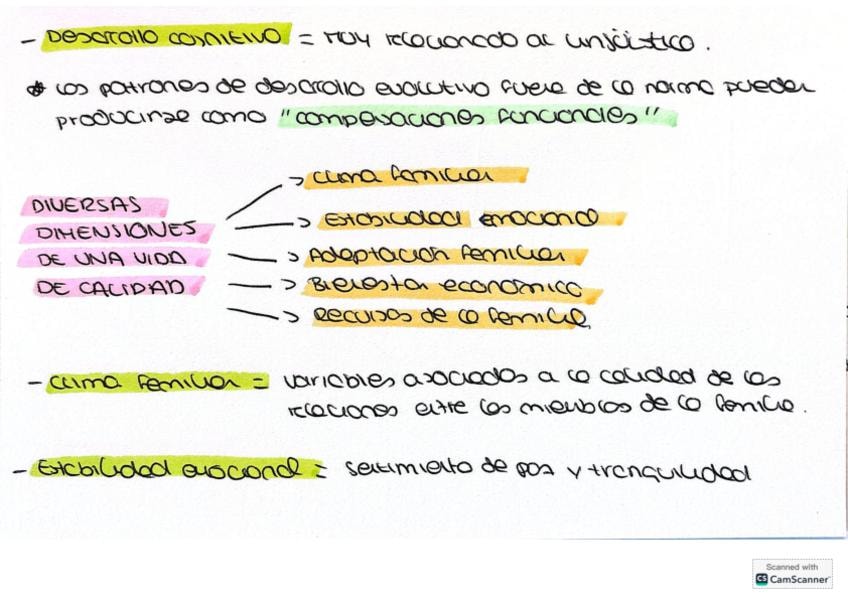 - Desarrollo cognitivo = Muy relacionado al lingüístico.
* Los patrones de desarrollo evolutivo fuera de la norma pueden
producirse como "compensaciones funcionales"
-> Clima familiar
DIVERSAS
DIMENSIONES -> Estabilidad emocional
DE UNA VIDA -> Adaptación familiar
DE CALIDAD -> Bienestar económico
-> Recursos de la familia
- Clima familiar = variables asociadas a la calidad de las
relaciones entre los miembros de la familia.
- Estabilidad emocional = sentimiento de paz y tranquilidad
Scanned with
CS CamScanner